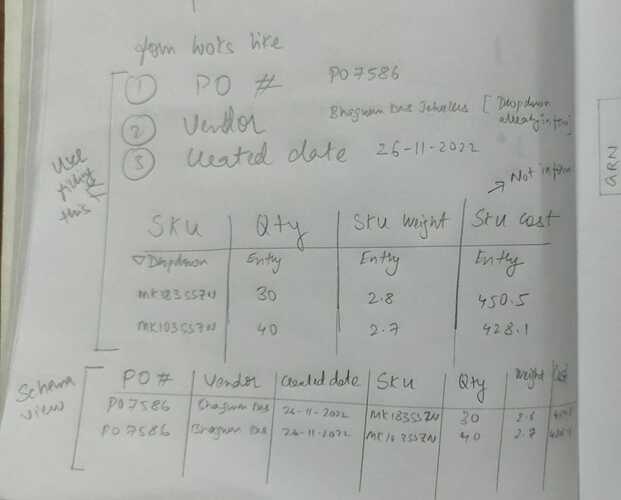 form looks like
① PO # PO7586
② Vendor Bhagwan Das Jehalles [Dropdown already in form]
③ Created date 26-11-2022
User filling this
→ Not in form
SKU Qty SKU weight SKU cost
▽Dropdown Entry Entry Entry
MK183SSZN 30 2.8 450.5
MK103SSZN 40 2.7 428.1
Schema view
PO# Vendor Created date SKU Qty Weight Cost
PO7586 Bhagwan Das 26-11-2022 MK183SSZN 30 2.8
PO7586 Bhagwan Das 26-11-2022 MK103SSZN 40 2.7
GRN